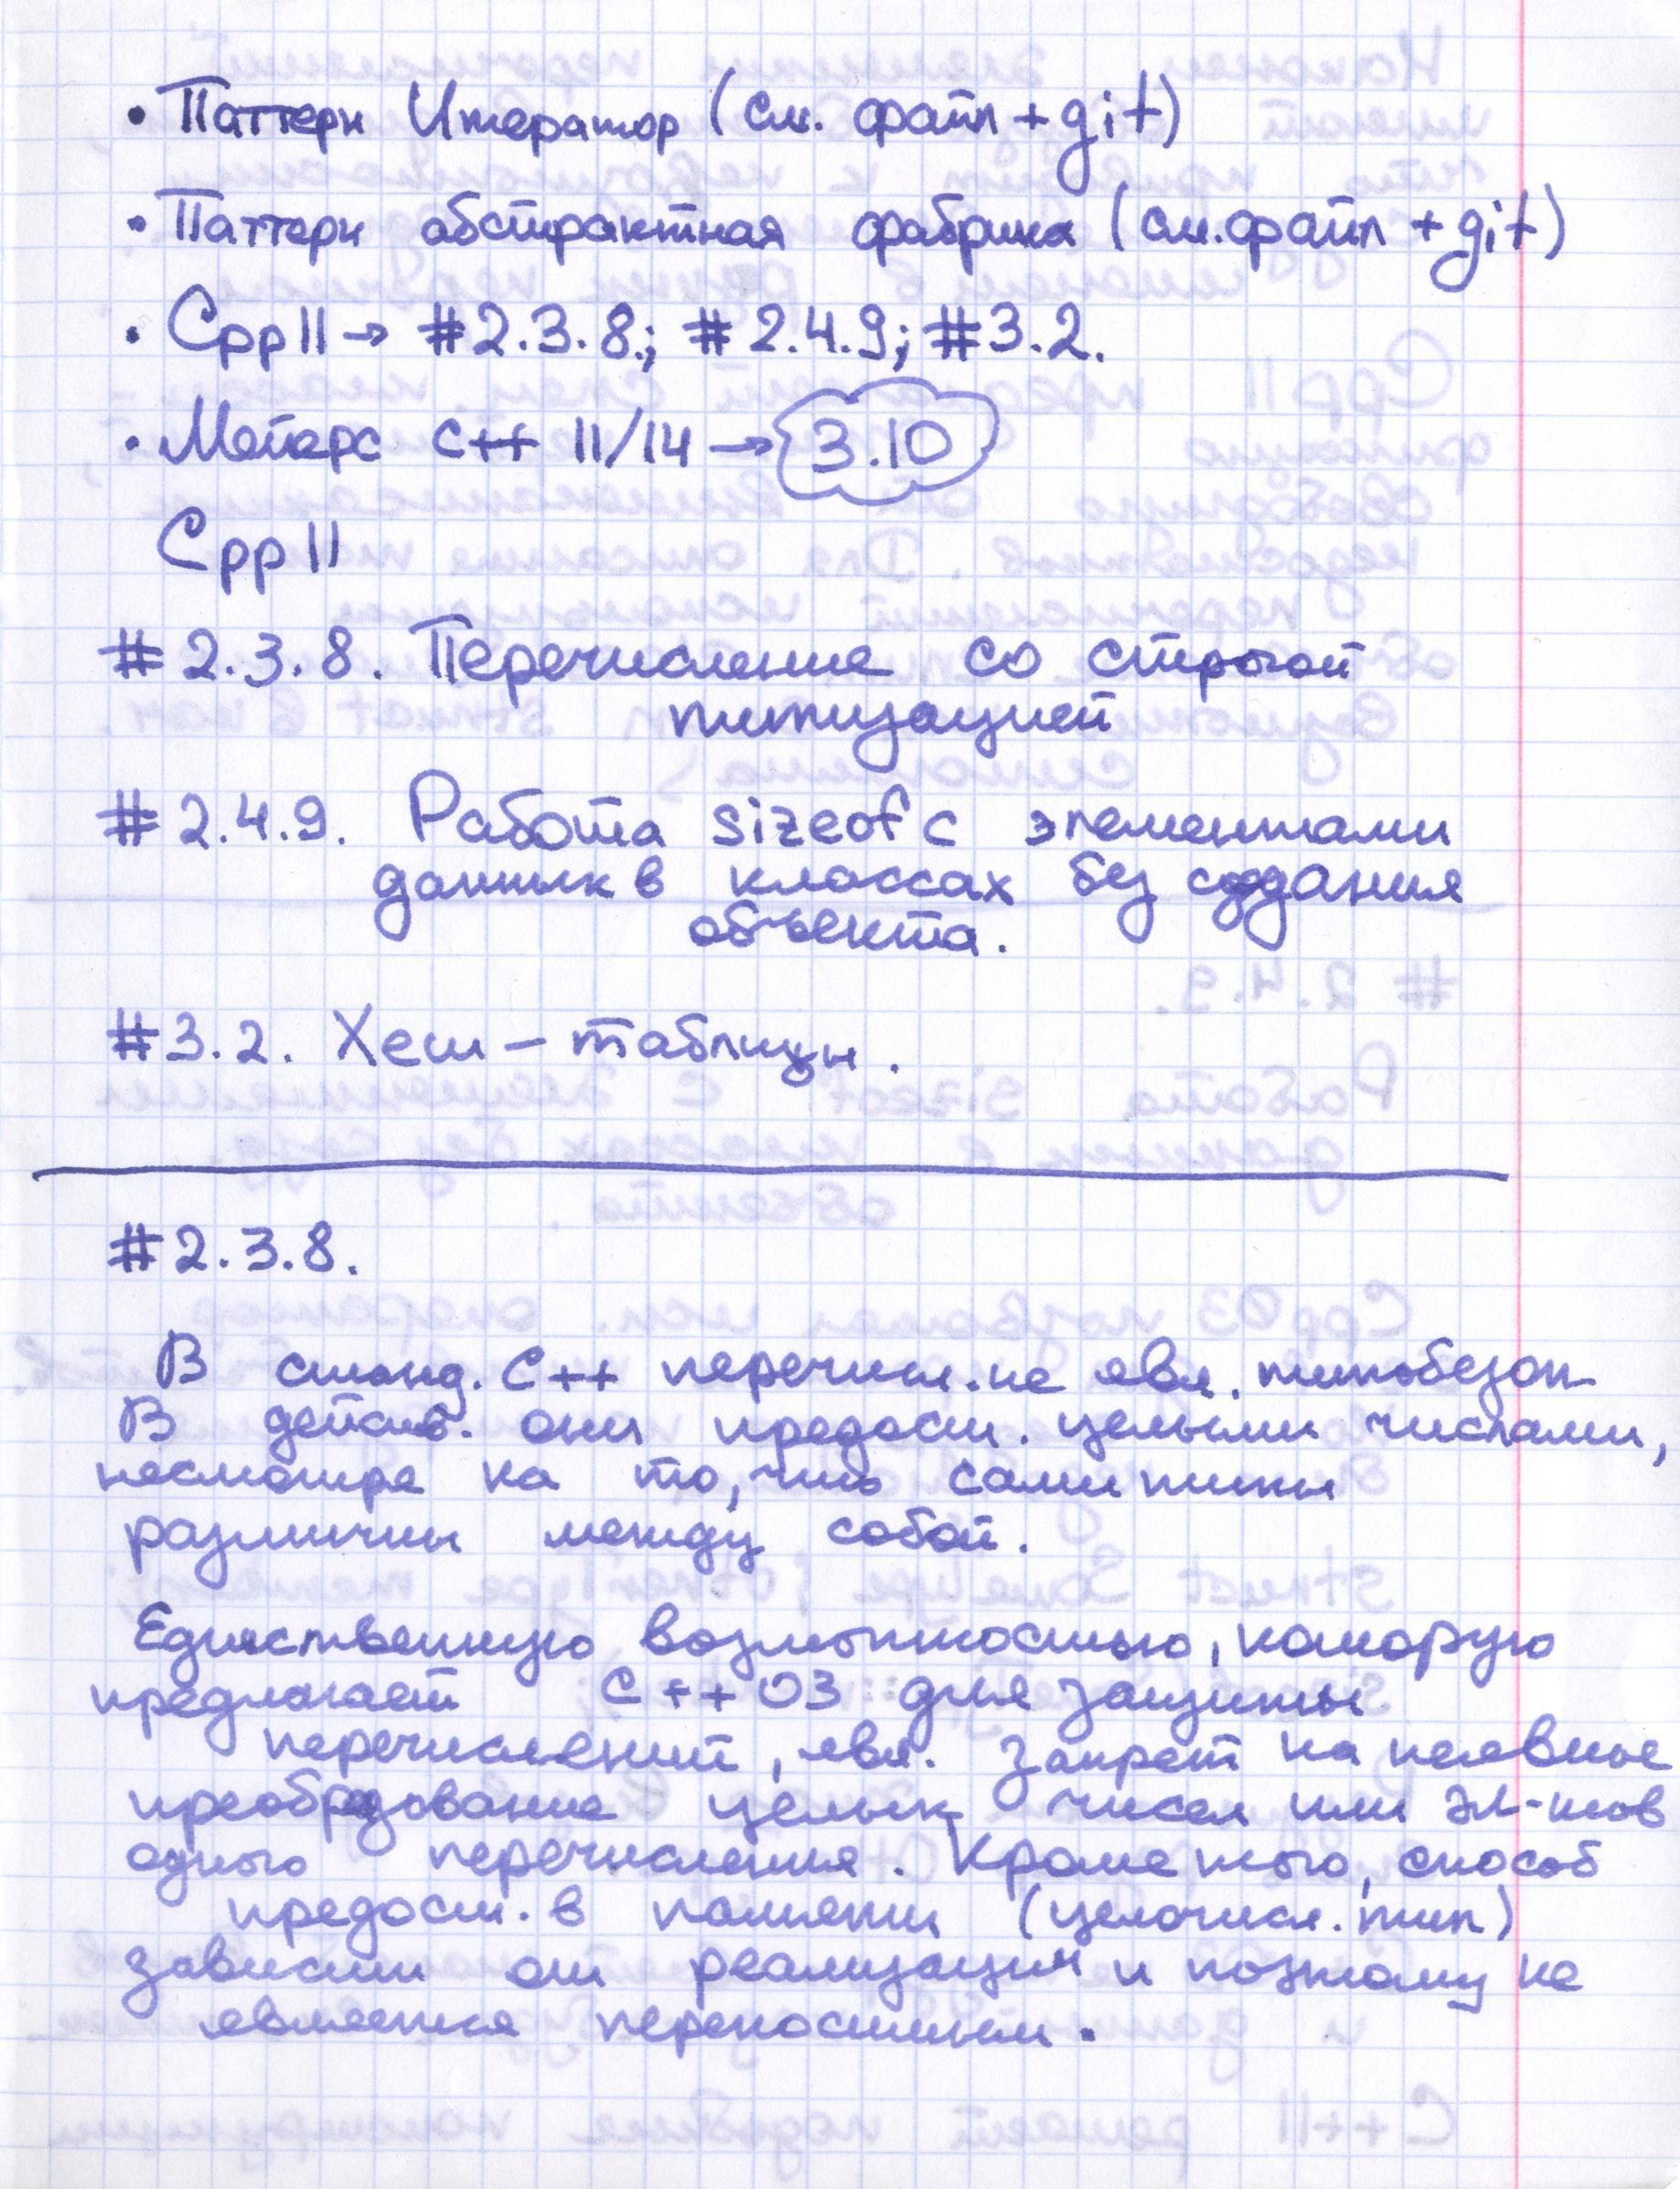 • Паттерн Итератор (см. файл + git)
• Паттерн абстрактная фабрика (см. файл + git)
• Cpp11 → #2.3.8; #2.4.9; #3.2.
• Мейерс C++ 11/14 → 3.10
Cpp11
#2.3.8. Перечисление со строгой
типизацией
#2.4.9. Работа sizeof с элементами
данных в классах без создания
объекта.
#3.2. Хеш-таблицы.
#2.3.8.
В станд. C++ перечисл. не явл. типобезоп
В действ. они предост. целыми числами,
несмотря на то, что сами типы
различны между собой.
Единственную возможностью, которую
предлагает C++03 для защиты
перечислений, явл. запрет на неявное
преобразование целых чисел или эл-тов
одного перечисления. Кроме того, способ
предост. в памяти (целочисл. тип)
зависит от реализации и поэтому не
является переносимым.